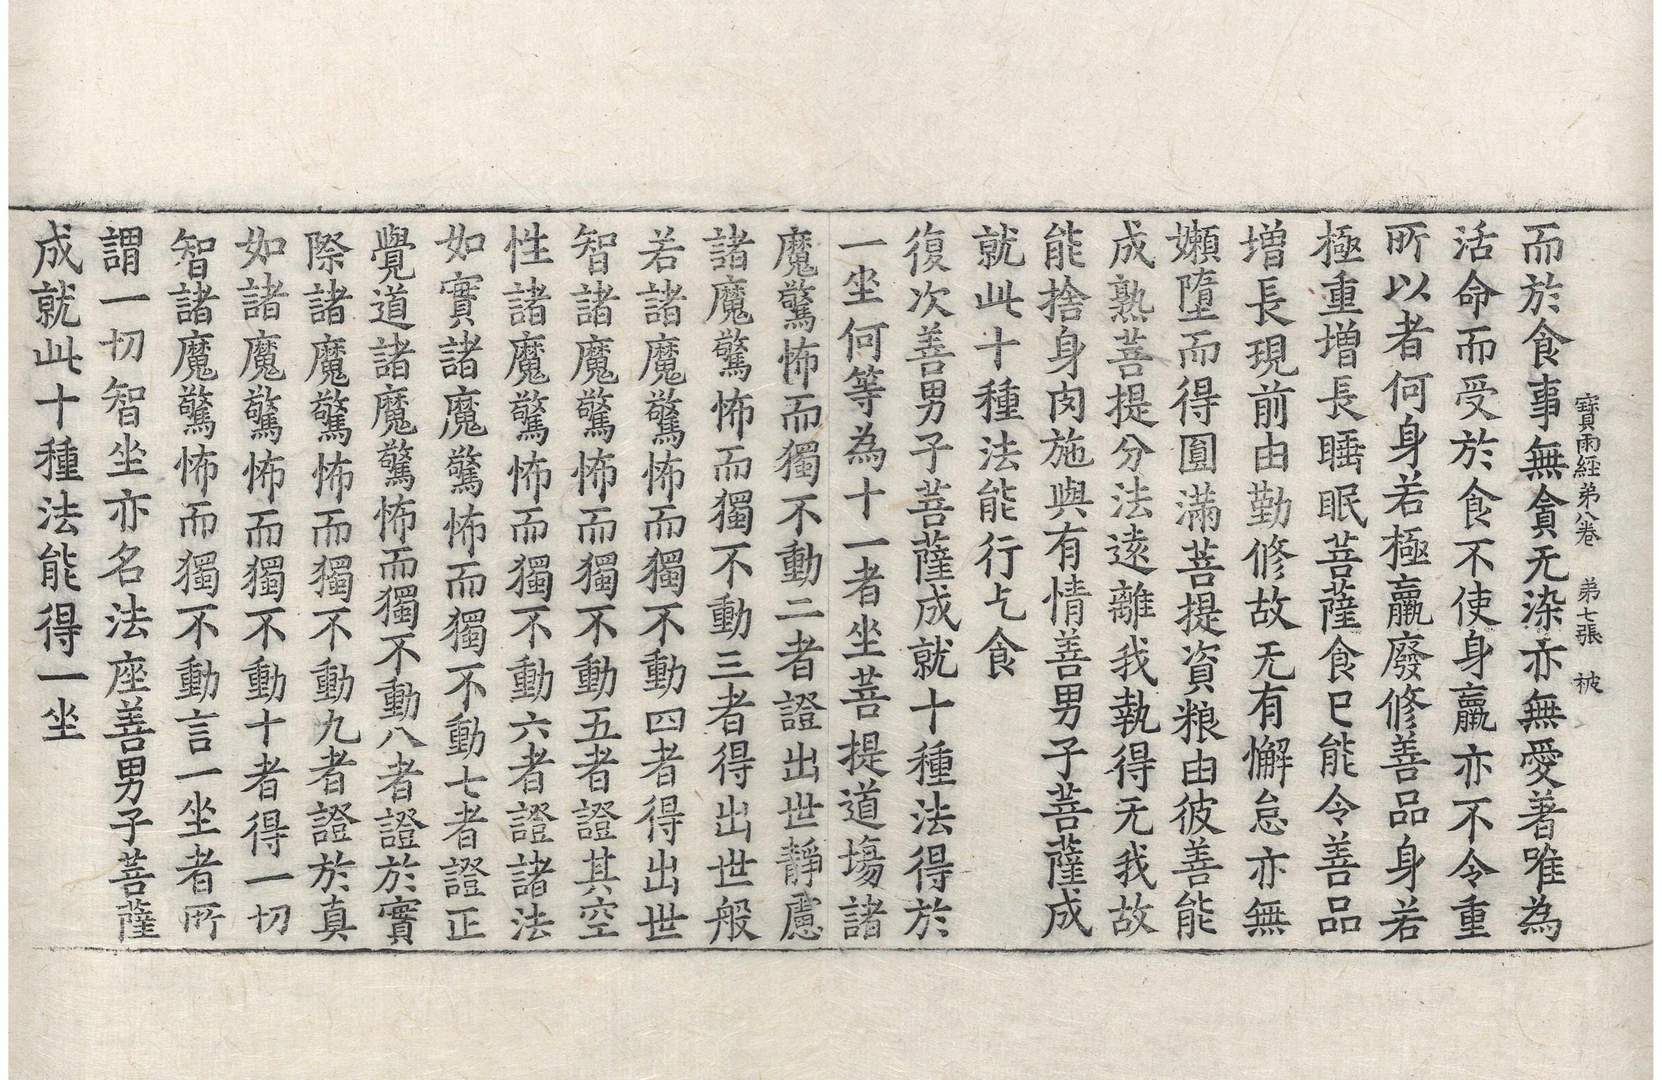 寶雨經苐八卷　苐七張　被
而於食事無貪无染亦無愛著唯為
活命而受於食不使身羸亦不令重
所以者何身若極羸廢修善品身若
極重增長睡眠菩薩食已能令善品
增長現前由勤修故无有懈怠亦無
嬾墮而得圓滿菩提資粮由彼善能
成熟菩提分法遠離我執得无我故
能捨身肉施與有情善男子菩薩成
就此十種法能行乞食
復次善男子菩薩成就十種法得於
一坐何等為十一者坐菩提道塲諸
魔驚怖而獨不動二者證出世靜慮
諸魔驚怖而獨不動三者得出世般
若諸魔驚怖而獨不動四者得出世
智諸魔驚怖而獨不動五者證其空
性諸魔驚怖而獨不動六者證諸法
如實諸魔驚怖而獨不動七者證正
覺道諸魔驚怖而獨不動八者證於實
際諸魔驚怖而獨不動九者證於真
如諸魔驚怖而獨不動十者得一切
智諸魔驚怖而獨不動言一坐者所
謂一切智坐亦名法座善男子菩薩
成就此十種法能得一坐